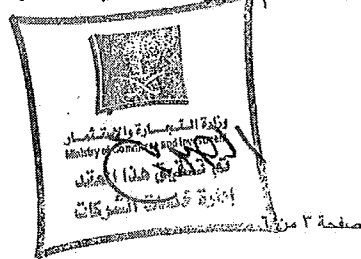 وزارة التجارة والاستثمار
Ministry of Commerce and Investment
تم تصديق هذا العقد
إدارة خدمات الشركات
صفحة ٣ من ٦